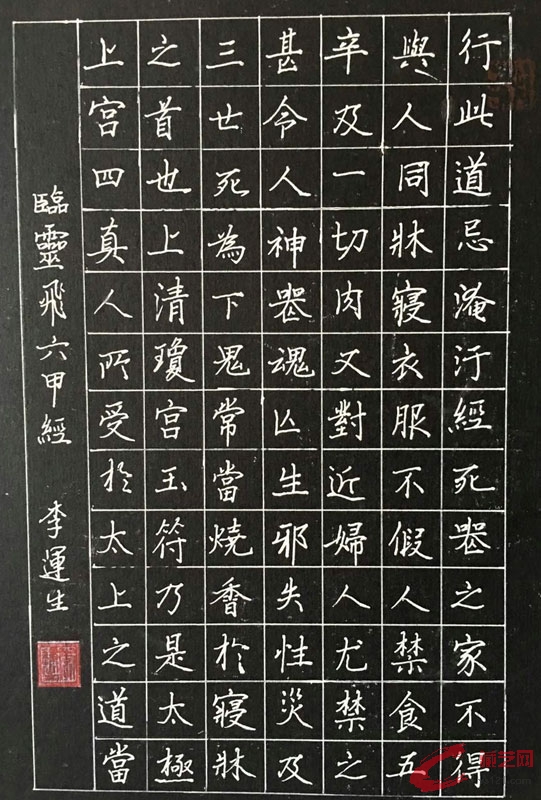 行此道忌淹汙經死喪之家不得
與人同牀寢衣服不假人禁食五
辛及一切肉又對近婦人尤禁之
甚令人神喪魂亡生邪失性災及
三世死為下鬼常當燒香於寢牀
之首也上清瓊宮玉符乃是太極
上宮四真人所受於太上之道當
臨靈飛六甲經 李運生